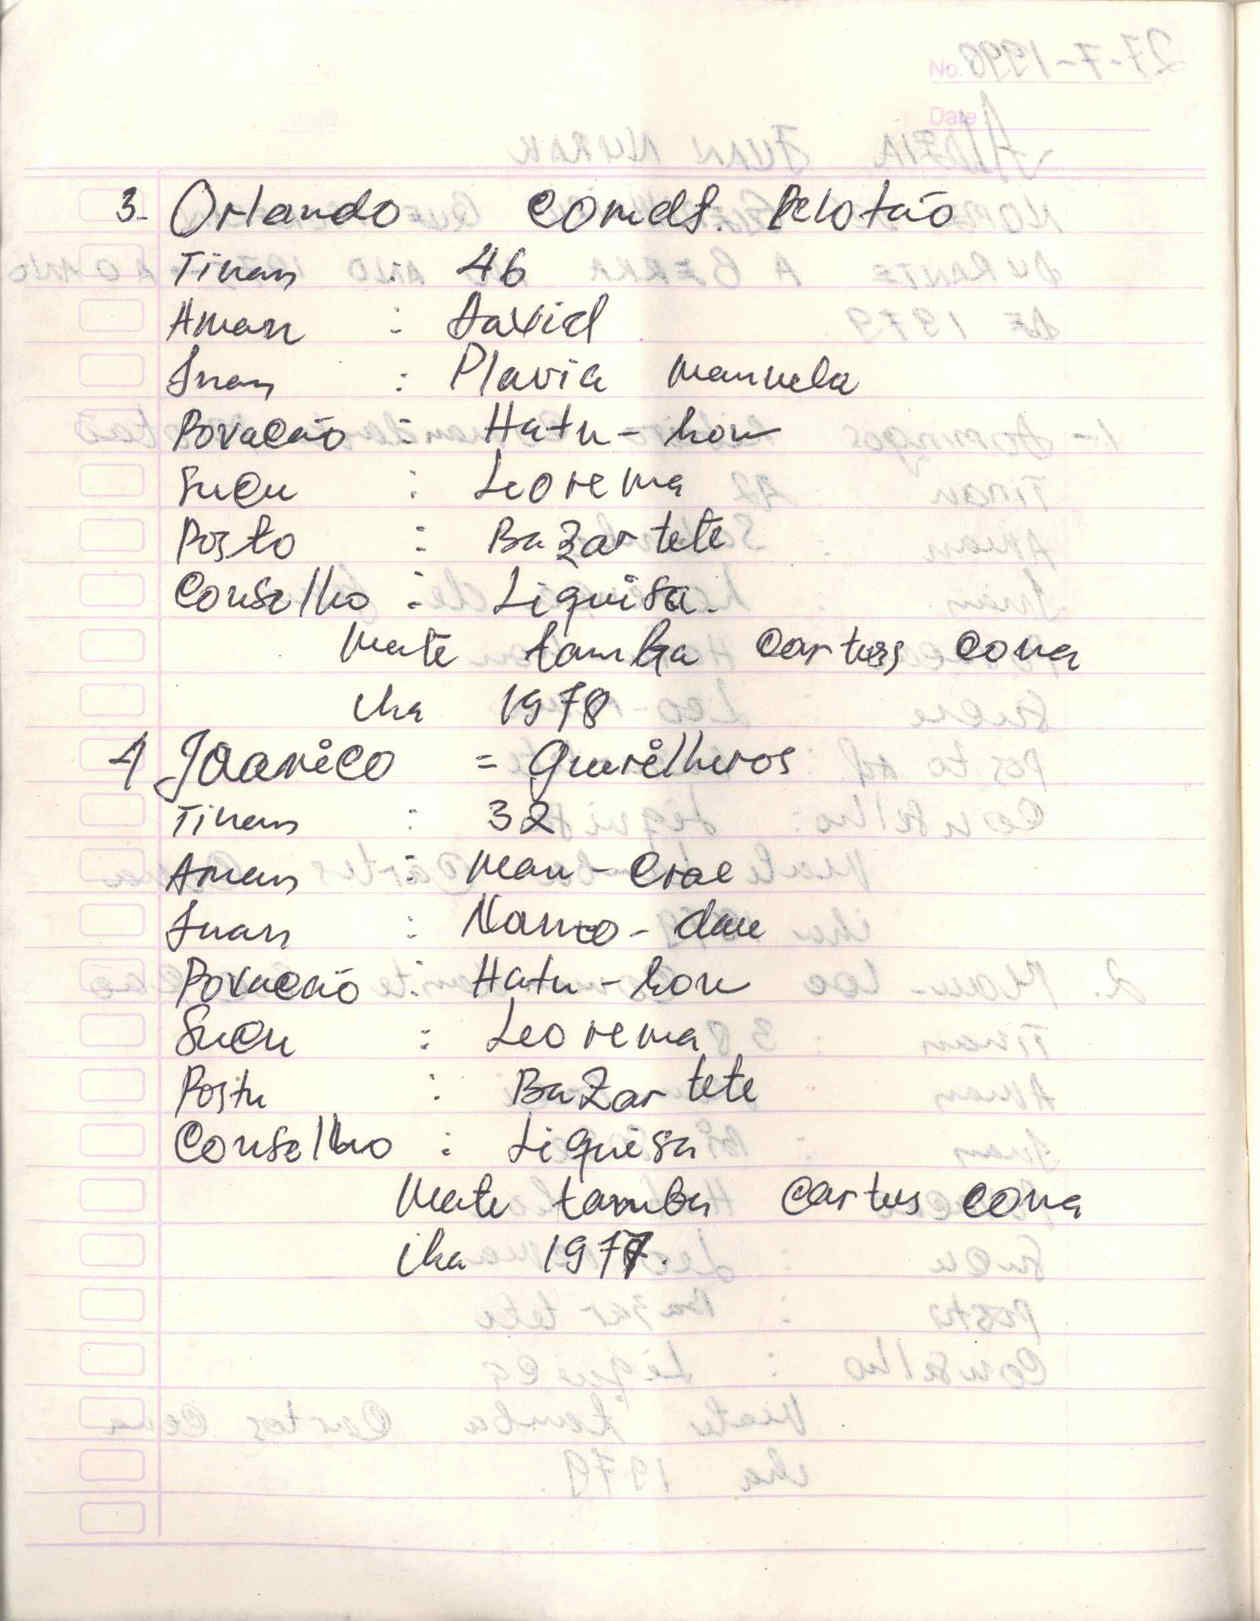 3- Orlando comdt. Pelotão
Tinan : 46
Aman : David
Inan : Plavia Manuela
Povacão : Hatu-hou
Sucu : Leorema
Posto : Bazartete
Conselho : Liquisa.
Mate tamba Cartus cona
iha 1978
4 Joanico = Guerilheros
Tinan : 32
Aman : Mau-Crae
Inan : Namo-dau
Povacão : Hatu-hou
Sucu : Leorema
Postu : BaZartete
Conselho : Liquisa
Mate tamba Cartus cona
iha 1977.